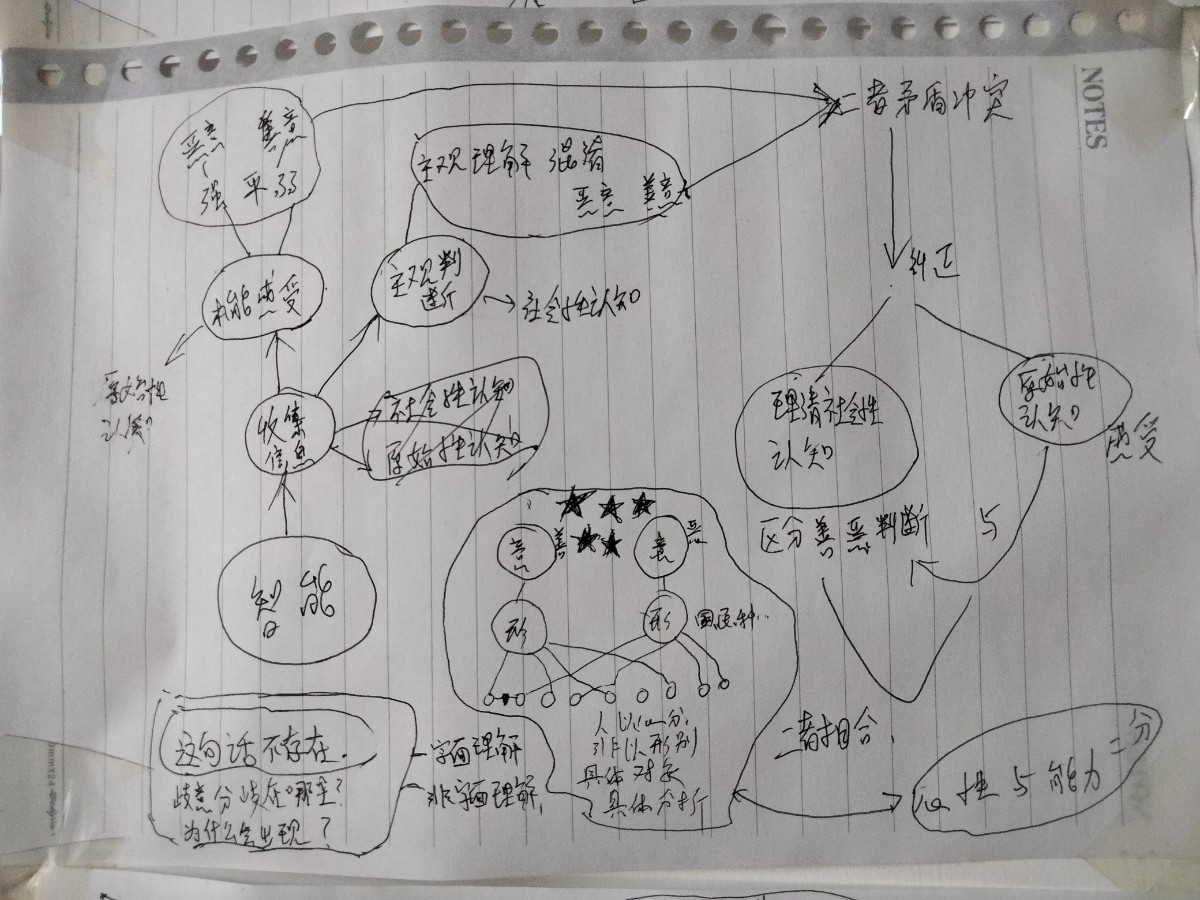 NOTES
二者矛盾冲突
恶意 善意
强 平 弱
主观理解 混淆
恶意 善意
主观判
断
机能感受
社会性认知
纠正
原始性
认知
收集
信息
社会性认知
原始性认知
理清社会性
认知
原始性
认知
感受
区分善恶判断
与
智能
意
善
意
恶
形
形
国民种..
这句话不存在.
歧意分歧在哪里?
为什么会出现?
字面理解
非字面理解.
人以心分,
引非以形别
具体对象
具体分析
二者相合.
心性与能力二分